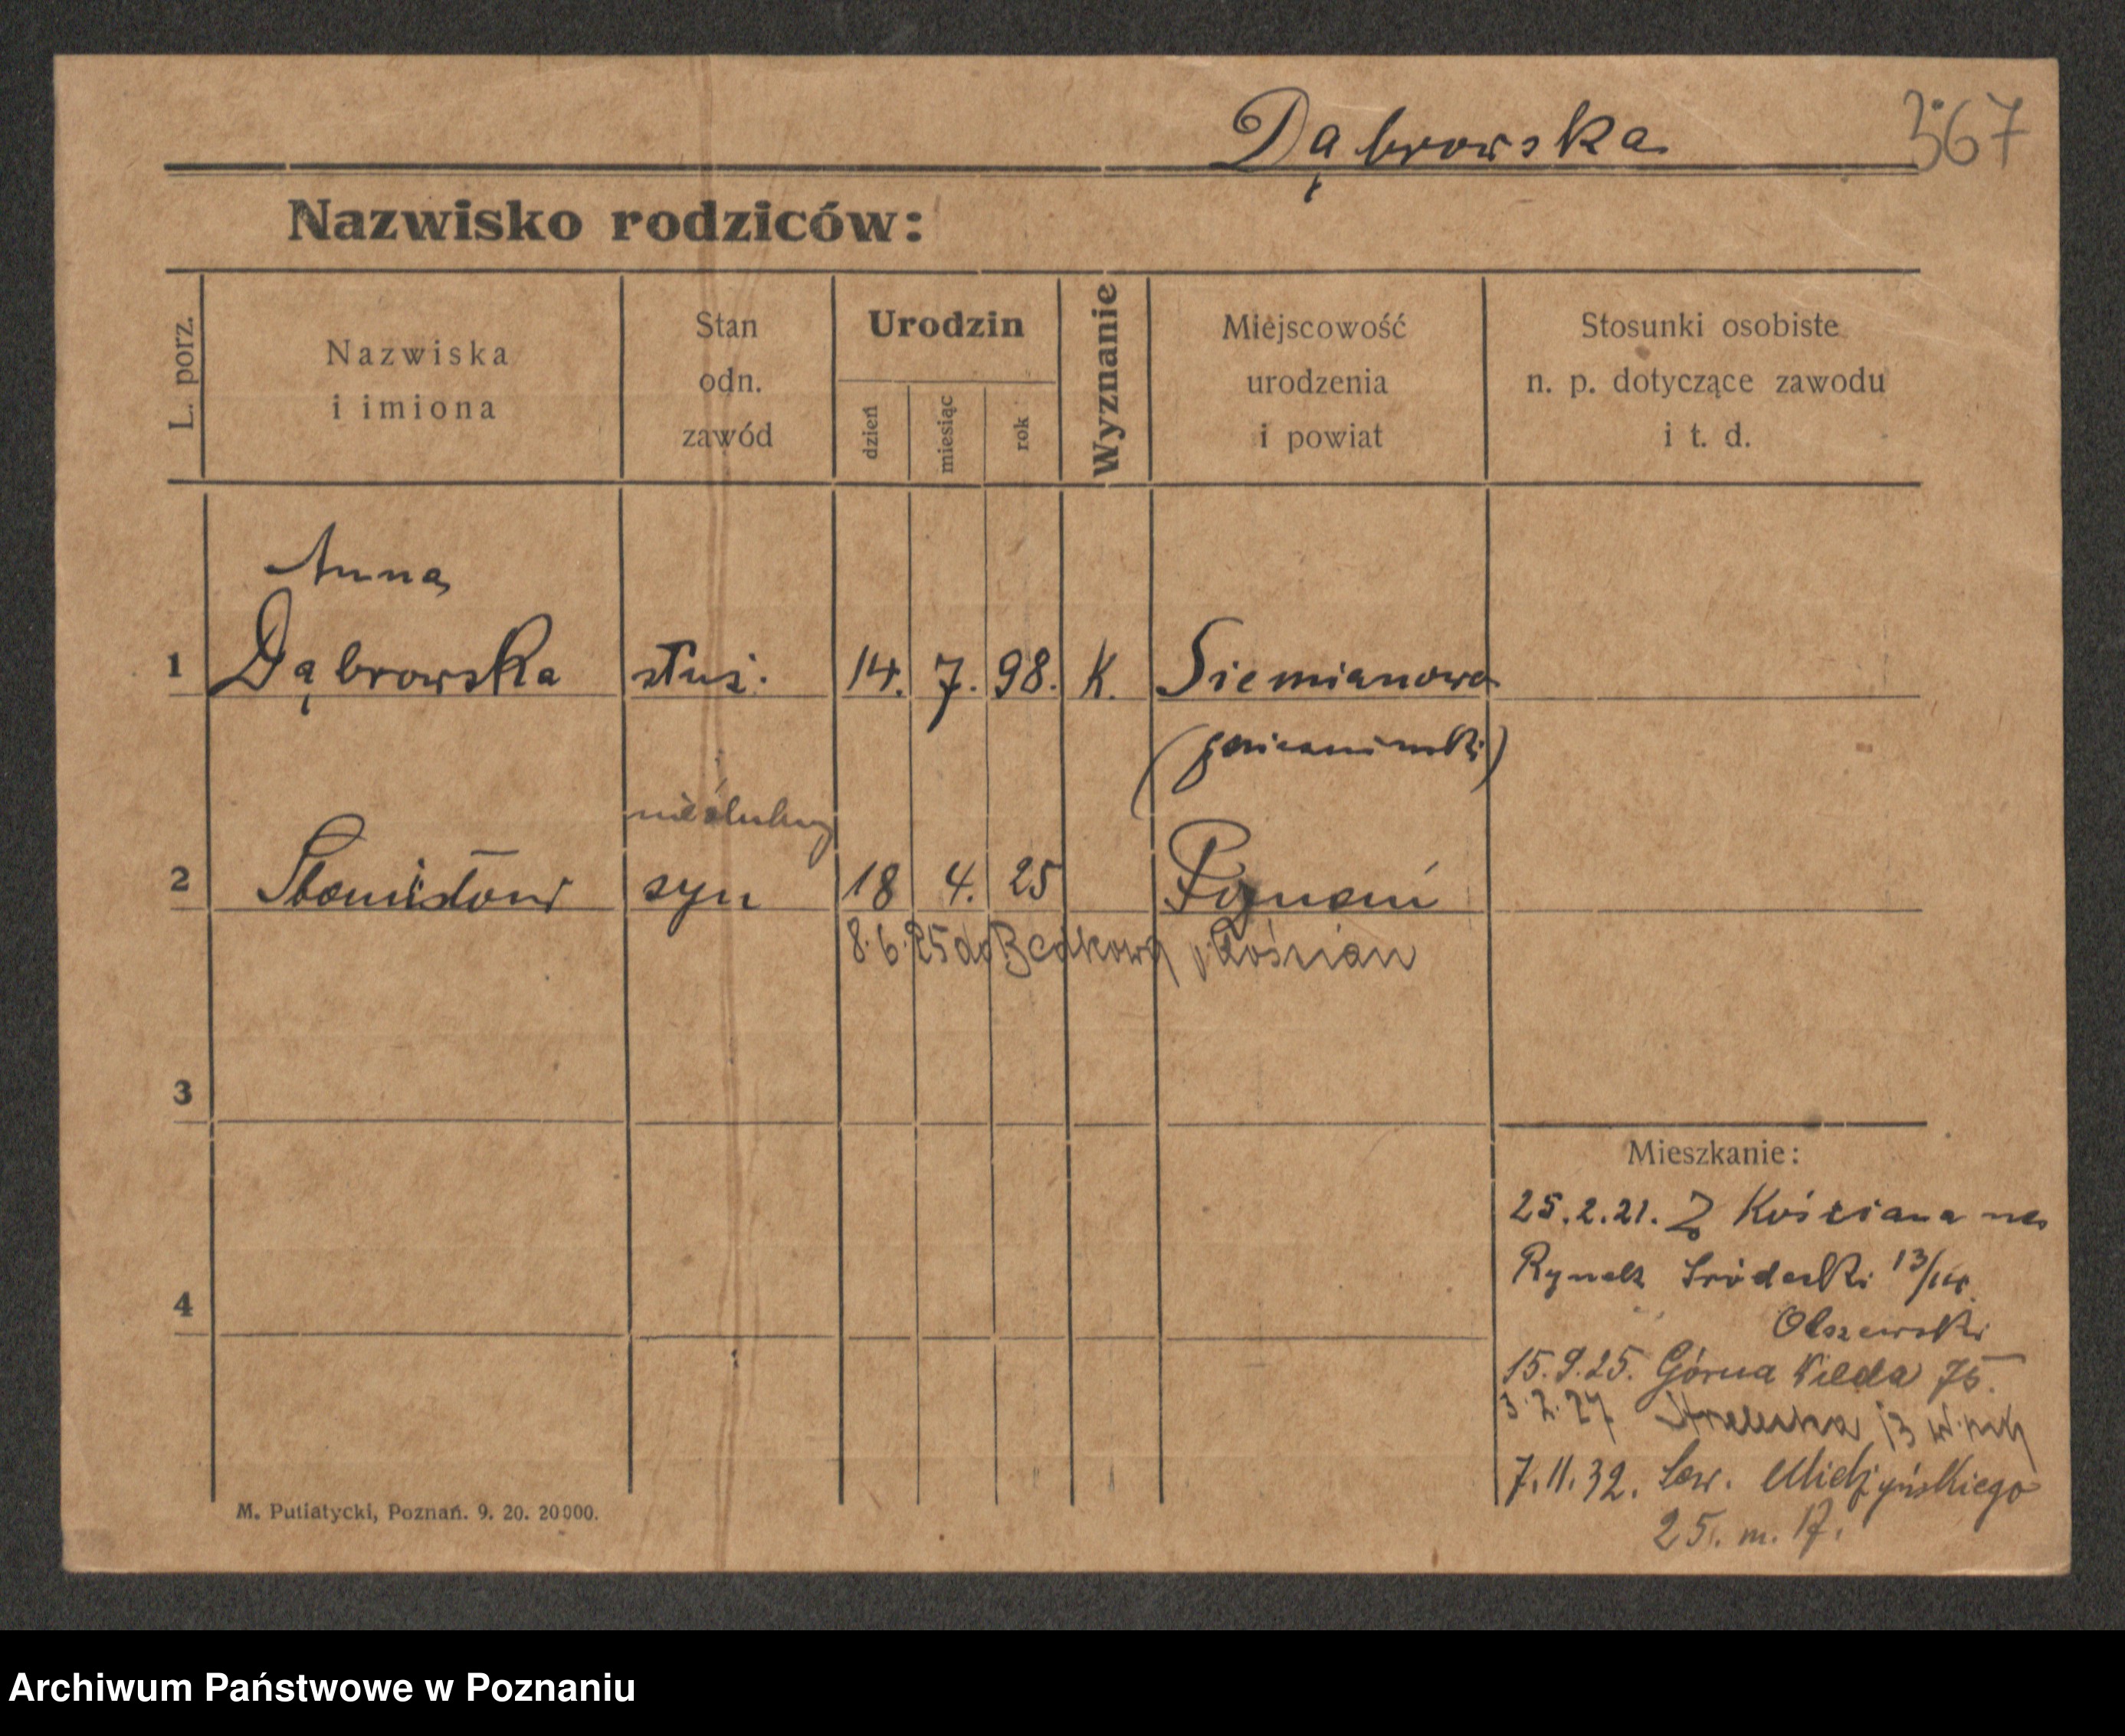 Dąbrowska 367
Nazwisko rodziców:
L. porz.
Nazwiska
i imiona
Stan
odn.
zawód
Urodzin
dzień
miesiąc
rok
Wyznanie
Miejscowość
urodzenia
i powiat
Stosunki osobiste
n. p. dotyczące zawodu
i t. d.
Anna
1 Dąbrowska służ. 14. 7. 98. K. Siemianowo
(gnieźnieński)
nieślubny
2 Stanisław syn 18 4. 25 Poznań
8.6.25 do Bedkowy p. Kościan
3
4
Mieszkanie:
25.2.21. Z Kościana na
Rynek Śródecki 13/14.
Olszewski
15.9.25. Górna Wilda 75.
3.2.27 Strzelecka 13
7.11.32. Sew. Mielżyńskiego
25. m. 17.
M. Putiatycki, Poznań. 9. 20. 20000.
Archiwum Państwowe w Poznaniu